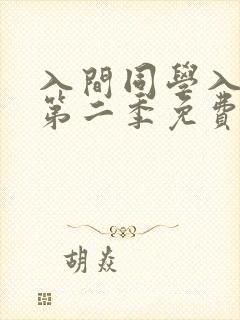 入間同學入
第二季免費
胡焱